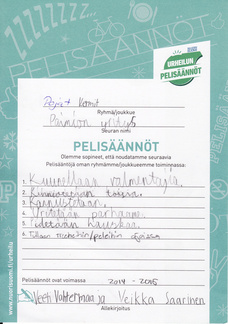 ZZZZZZZ...
PELISÄÄNNÖT
URHEILUN
PELISÄÄNNÖT
Kermit
Ryhmä/joukkue
Paimion yritys
Seuran nimi
PELISÄÄNNÖT
Olemme sopineet, että noudatamme seuraavia
Pelisääntöjä oman ryhmämme/joukkueemme toiminnassa:
1. Kuunnellaan valmentajia.
2. Kunnioitetaan toisia.
3. Kannustetaan.
4. Yritetään parhaamme.
5. Pidetään hauskaa.
6.
Pelisäännöt ovat voimassa 2014 - 2015
Veeti ja Veikka Saarinen
Allekirjoitus
www.nuorisuomi.fi/urheilu